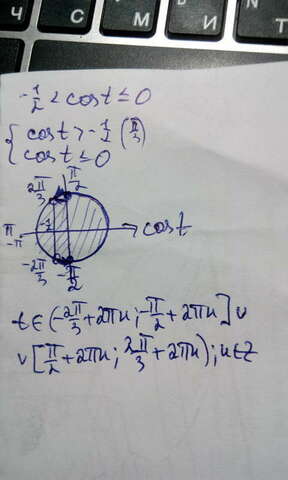 Ч С М И
-1/2 < cos t ≤ 0
{ cos t > -1/2 (π/3)
cos t ≤ 0
2π/3 π/2
π -π -1/2 cos t
-2π/3 -π/2
t ∈ (-2π/3 + 2πn ; -π/2 + 2πn] ∪
∪ [π/2 + 2πn ; 2π/3 + 2πn) ; n ∈ Z